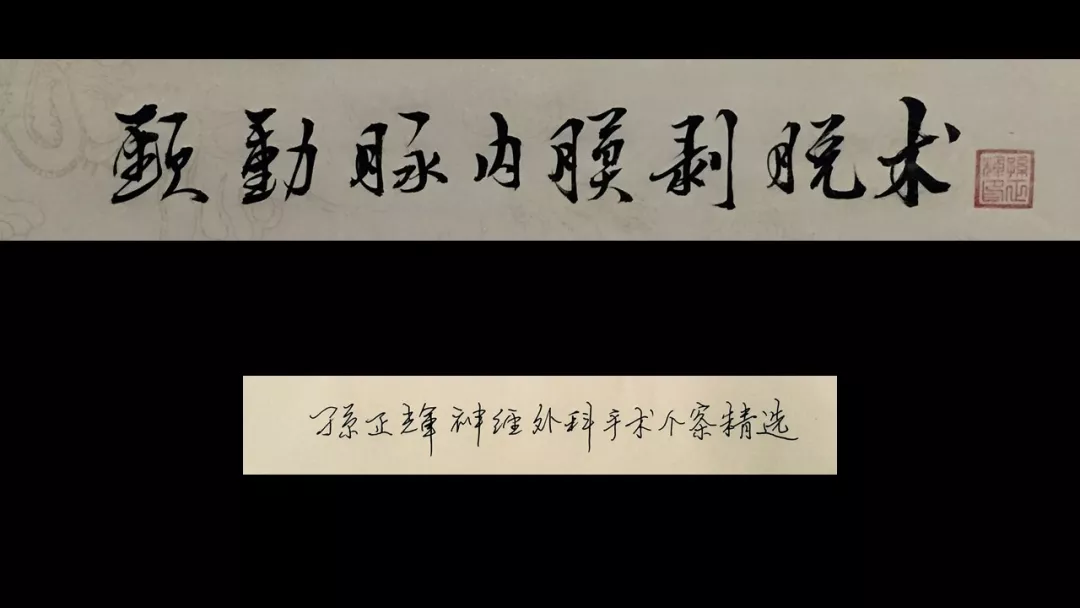 頸動脉内膜剥脱术
孫正辉神经外科手术个案精选